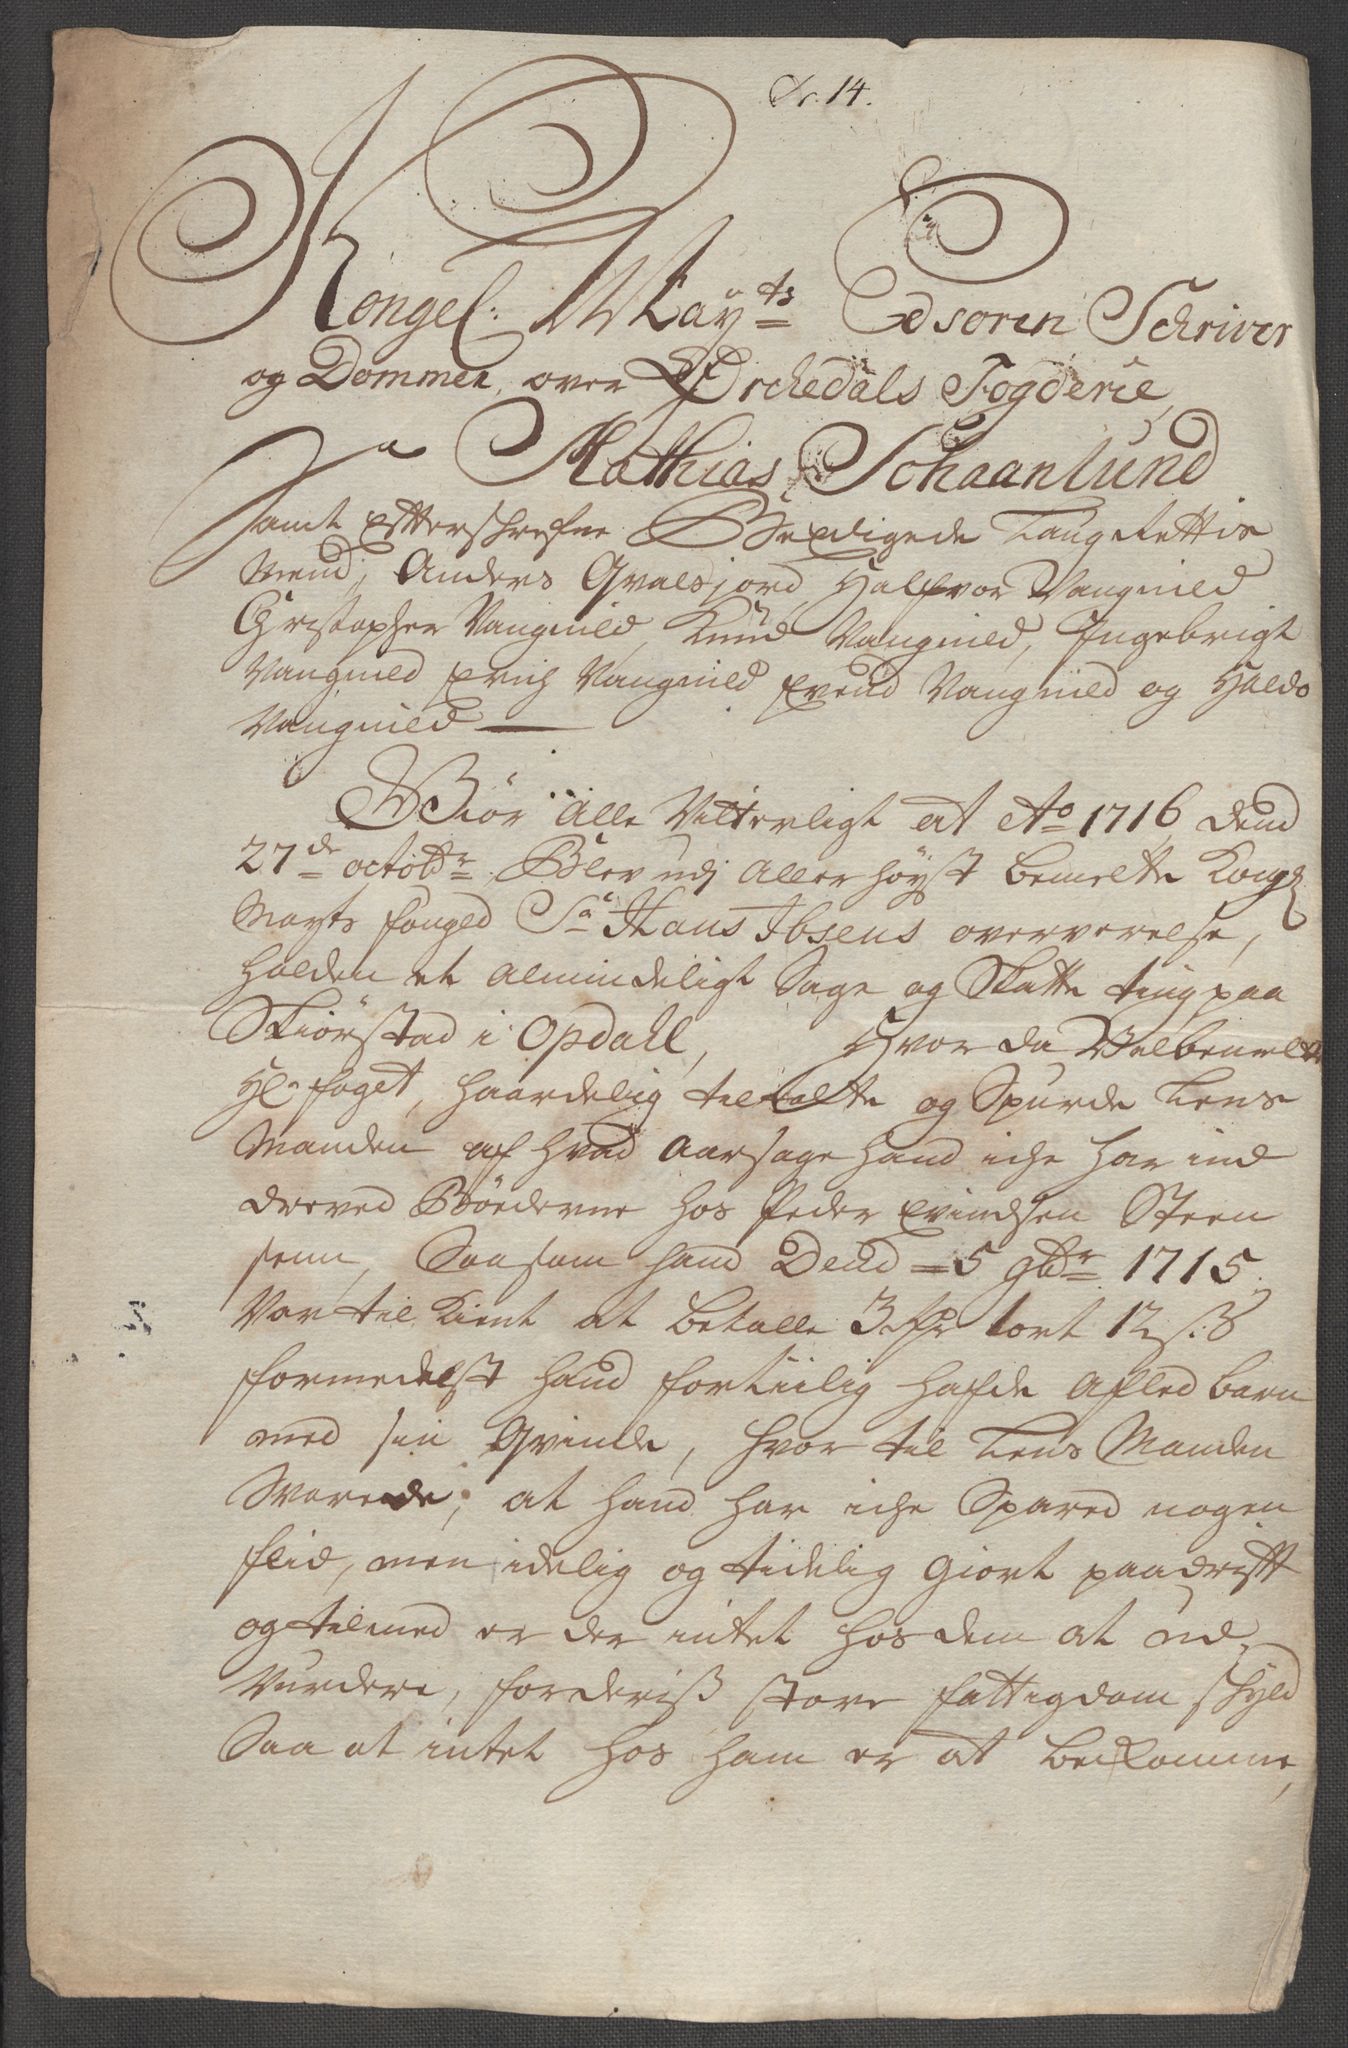 Nr. 14.
Kongel: Mayts Edsoren Schriver
og Dommer, over Ørchedals Fogderie,
Mathias Schaanlund
Samt Efterschrefne Beædigede Laug Rettis
Mend, Anders Qvalsjord, Halfvor Vangnild
Christopher Vangnild, Knud Vangnild, Ingebrigt
Vangnild Erich Vangnild Evend Vangnild og Haldo
Vangnild
Giør Alle Vitterligt at Ao 1716 Dend
27de octobr Blev udj Aller høyst bemelte Kongl
Mayts fouged Sr Hans Ibsens oververelse,
holden et Almindeligt Sage og Skatte ting paa
Skiørstad i Opdall, Hvor da Velbemelte
Hl. foget, haardelig tiltalte og Spurde Lens
Manden af hvad Aarsage hand iche har ind
dreved Bøederne hos Peder Evindsen Steen
senn, Saasom hand Dend 5 9br 1715.
Var til Kient at betalle 3 rdr ort 12 s:
formedelst hand fortiilig hafde Afled barn
med sin Qvinde, hvor til Lens Manden
Svarede, at hand har iche Spared nogen
flid, men idelig og tidelig giort paadrift
og tilmed er der intet hos dem at ud
Vurdere, for deriss store fattigdom skyld
Saa at intet hos ham er at bekomme,